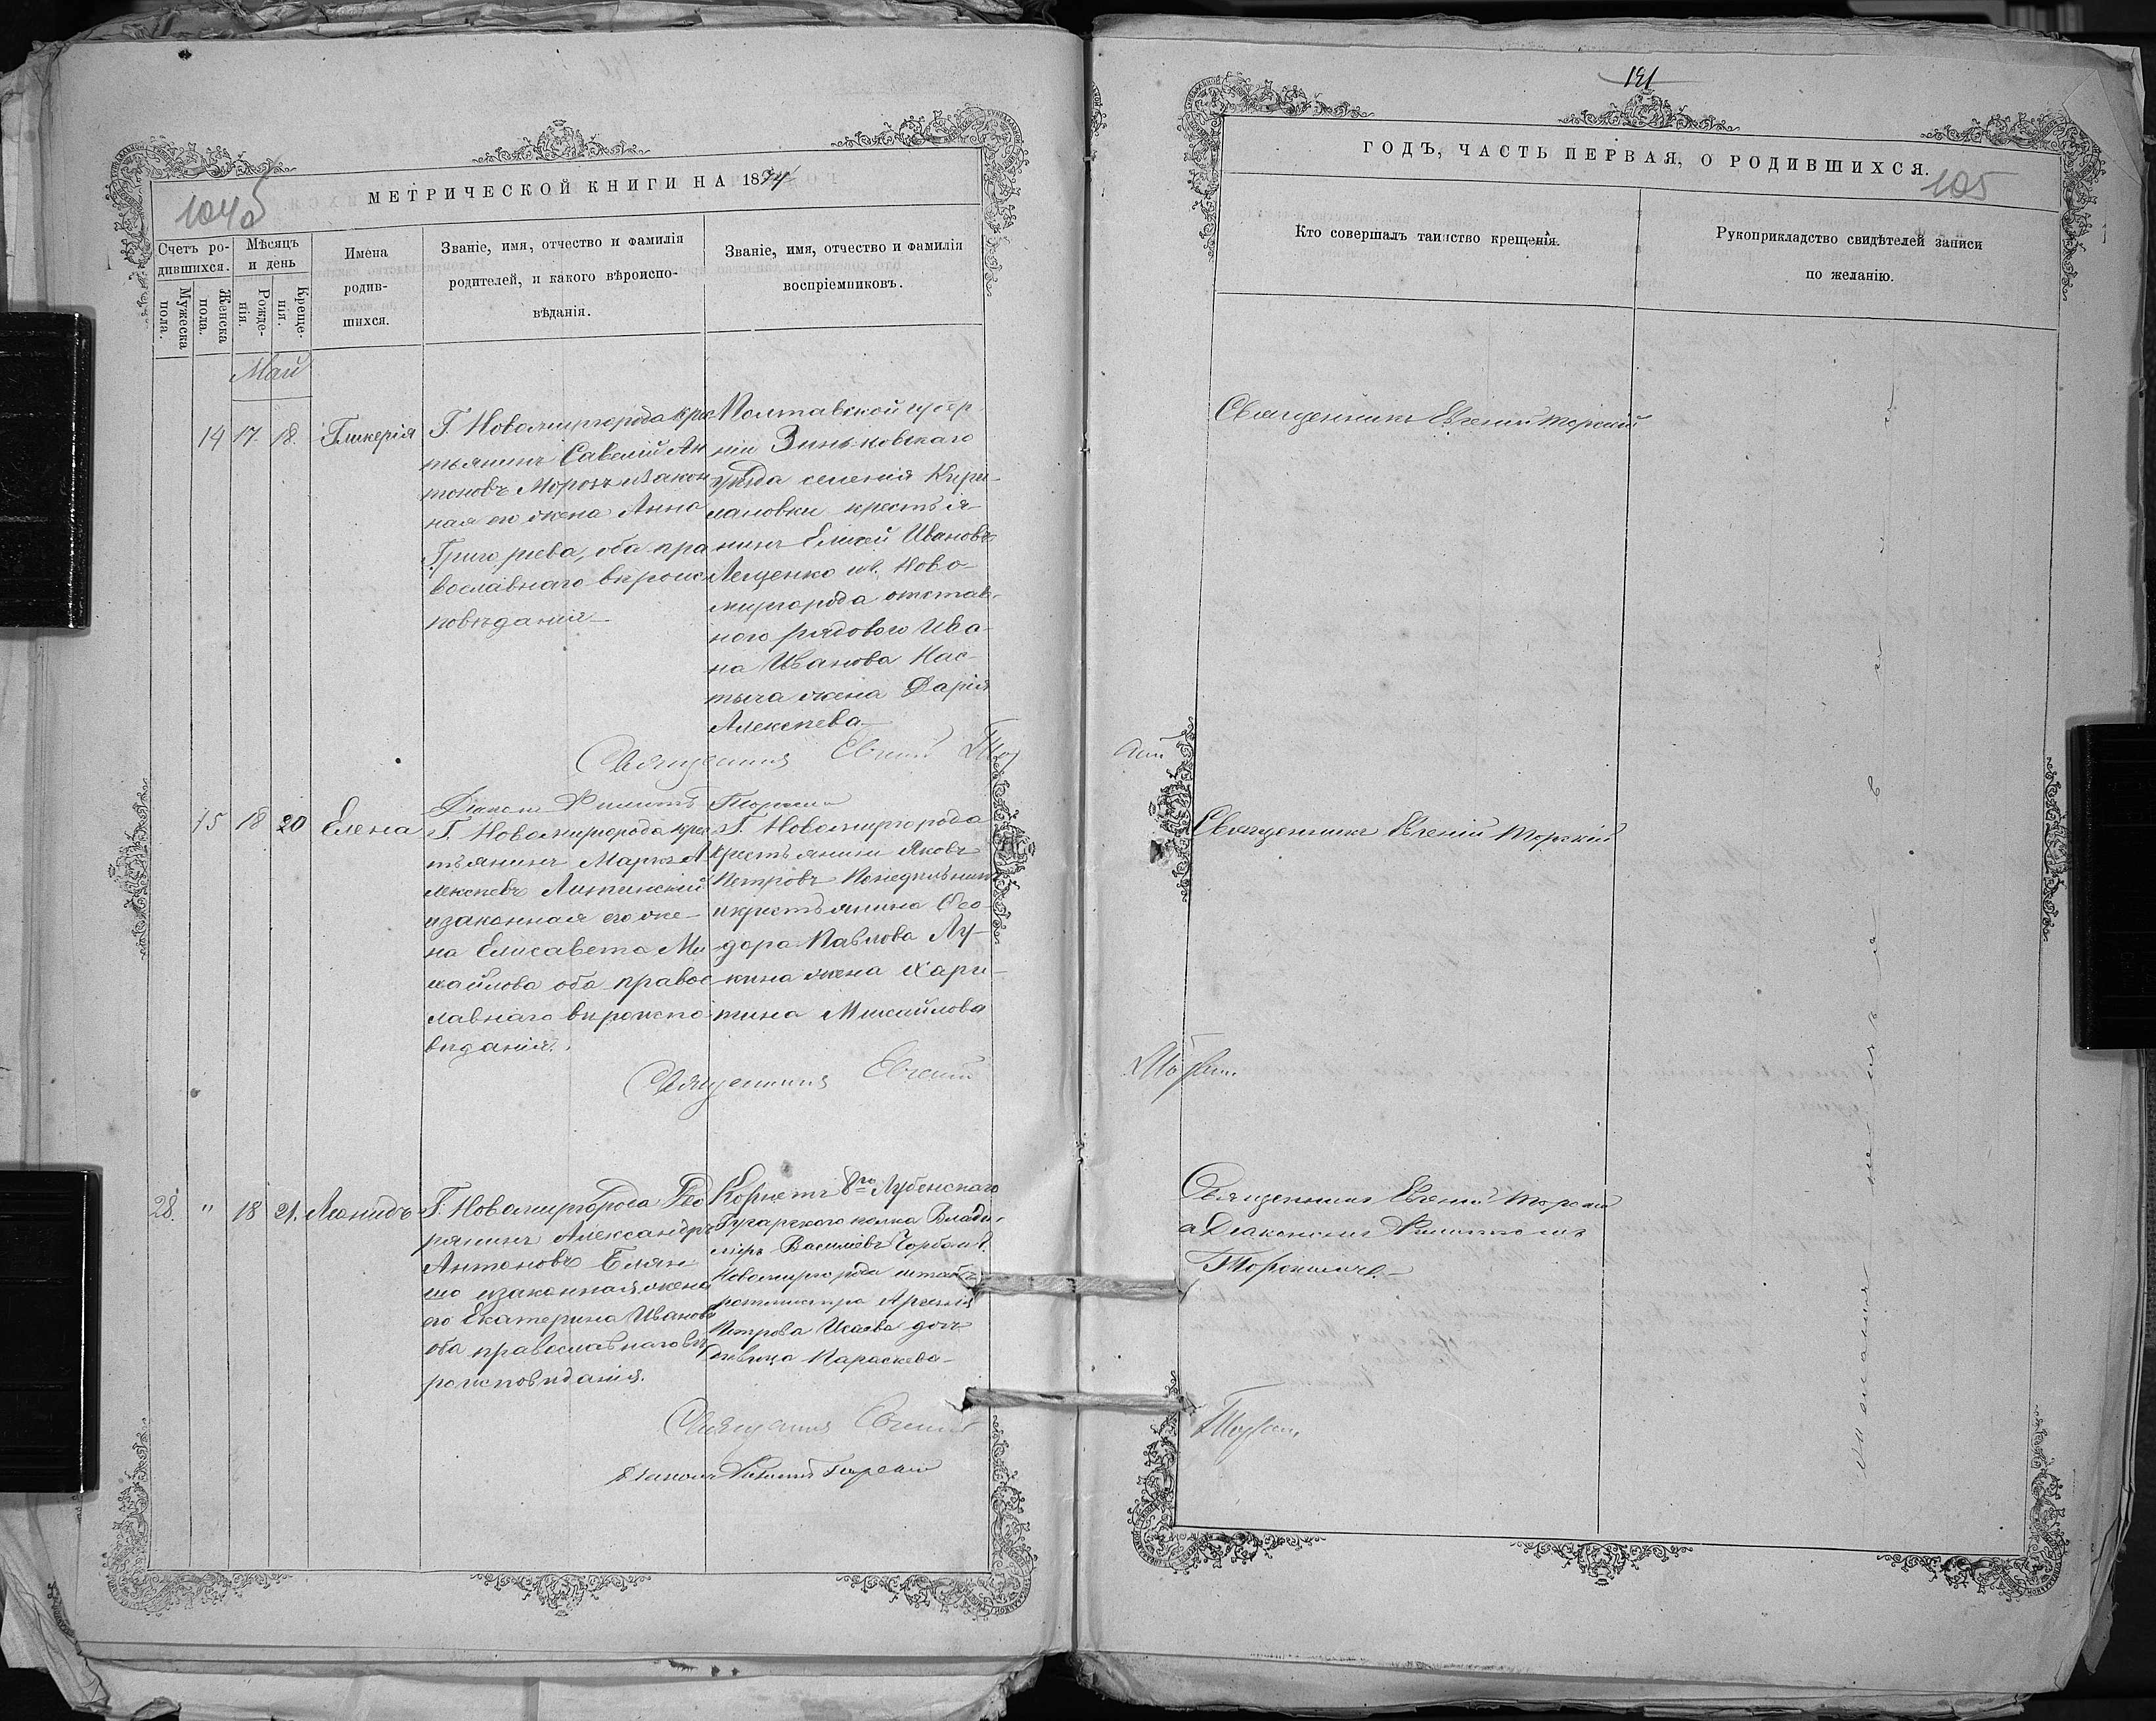 МЕТРИЧЕСКОЙ КНИГИ НА 1874
Счетъ ро-
дившихся.
Мужеска
пола.
Женска
пола.
Мѣсяцъ
и день
Рожде-
нія.
Креще-
нія.
Имена
родив-
шихся.
Званіе, имя, отчество и фамилія
родителей, и какого вѣроиспо-
вѣданія.
Званіе, имя, отчество и фамилія
воспріемниковъ.
Май
14 17. 18. Гликерія
Г. Новомиргорода крес
тьянинъ Савелій Ан
тоновъ Морозъ и закон
ная его жена Анна
Григорьева, оба пра
вославнаго вѣроис
повѣданія
Полтавской губер
ніи Зиньковскаго
уѣзда селенія Кири
ловки крестья-
нинъ Елисей Ивановъ
Лещенко и г. Ново-
миргорода отстав-
ного рядового Ива-
на Иванова Кас-
тыча жена Дарія
Алексѣева
Священникъ Евгеній
Діаконъ Филиппъ
15 18 20 Елена
Г. Новомиргорода крес
тьянинъ Марко А
лексѣевъ Литинскій
и законная его же-
на Елисавета Ми
хайлова оба правос
лавнаго вѣроиспо
вѣданія.
Г. Новомиргорода
крестьянинъ Яковъ
Петровъ
и крестьянина Ѳео-
дора Павлова Лу-
кина жена Хари-
тина Михайлова
Священникъ Евгеній
28. " 18 21. Леонидъ
Г. Новомиргорода Дво
рянинъ Александръ
Антоновъ
и законная жена
его Екатерина Иванова
оба православнаго вѣ
роисповѣданія.
Корнетъ 8го Лубенскаго
Гусарскаго полка Влади-
міръ Василіевъ Горбан
Новомиргорода штабъ
ротмистра Арсенія
Петрова Исаева дочь
дѣвица Параскева
Священникъ Евгеній
Діаконъ Филиппъ Торскій
131
ГОДЪ, ЧАСТЬ ПЕРВАЯ, О РОДИВШИХСЯ.
105
Кто совершалъ таинство крещенія.
Рукоприкладство свидѣтелей записи
по желанію.
Священникъ Евгеній Торскій
Священникъ Евгеній Торскій
Торскій
Священникъ Евгеній Торскій
съ Діакономъ Филиппомъ
Торскимъ
Торскій